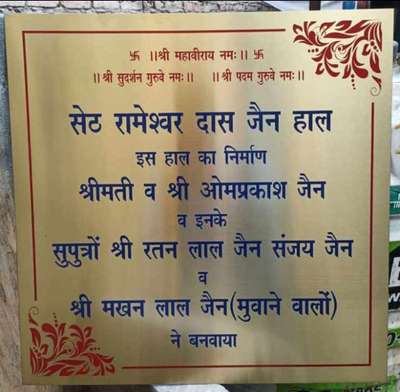 卐 ॥श्री महावीराय नमः॥ 卐
॥श्री सुदर्शन गुरुवे नमः॥ ॥श्री पदम गुरुवे नमः॥
सेठ रामेश्वर दास जैन हाल
इस हाल का निर्माण
श्रीमती व श्री ओमप्रकाश जैन
व इनके
सुपुत्रों श्री रतन लाल जैन संजय जैन
व
श्री मखन लाल जैन(मुवाने वालों)
ने बनवाया